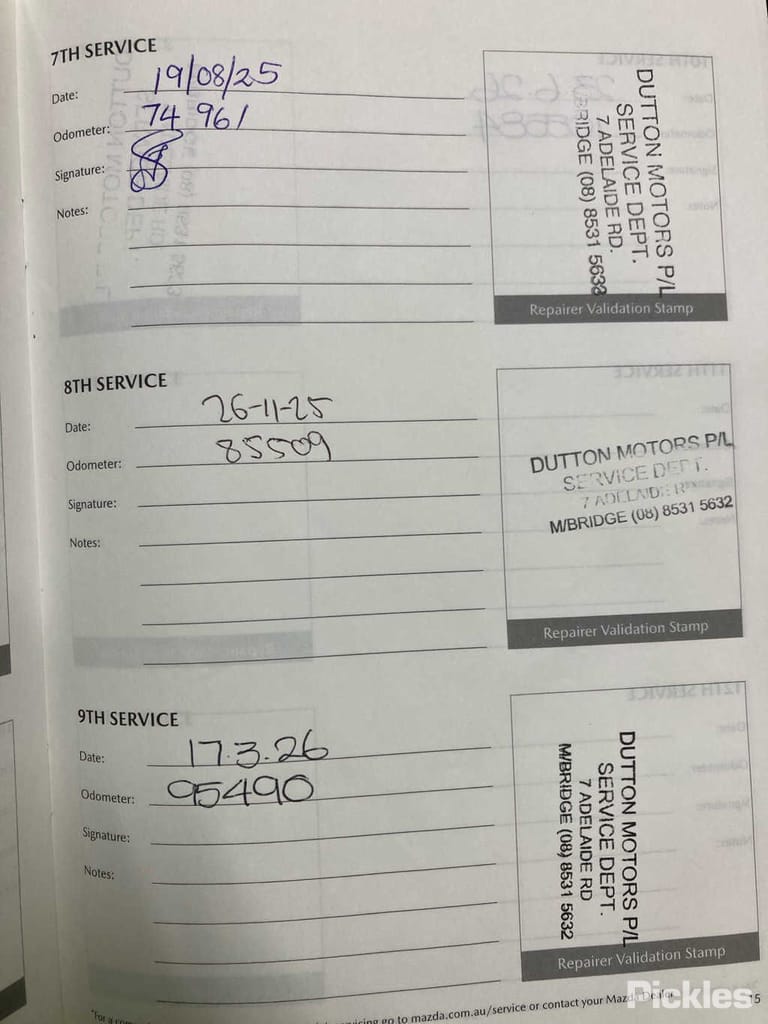 7TH SERVICE
Date: 19/08/25
Odometer: 74 961
Signature:
Notes:
DUTTON MOTORS P/L
SERVICE DEPT.
7 ADELAIDE RD.
M/BRIDGE (08) 8531 5632
Repairer Validation Stamp
8TH SERVICE
Date: 26-11-25
Odometer: 85509
Signature:
Notes:
DUTTON MOTORS P/L
SERVICE DEPT.
7 ADELAIDE RD
M/BRIDGE (08) 8531 5632
Repairer Validation Stamp
9TH SERVICE
Date: 17.3.26
Odometer: 95490
Signature:
Notes:
DUTTON MOTORS P/L
SERVICE DEPT.
7 ADELAIDE RD
M/BRIDGE (08) 8531 5632
Repairer Validation Stamp
go to mazda.com.au/service or contact your Mazda Dealer 15
Pickles